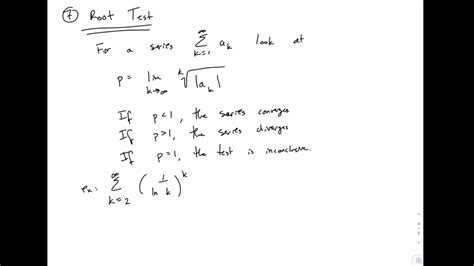 ⑦ Root Test
For a series ∞ Σ k=1 a_k look at
p = lim k→∞ ᵏ√|a_k|
If p<1, the series converges
If p>1, the series diverges
If p=1, the test is inconclusive.
ex: ∞ Σ k=2 (1/ln k)^k